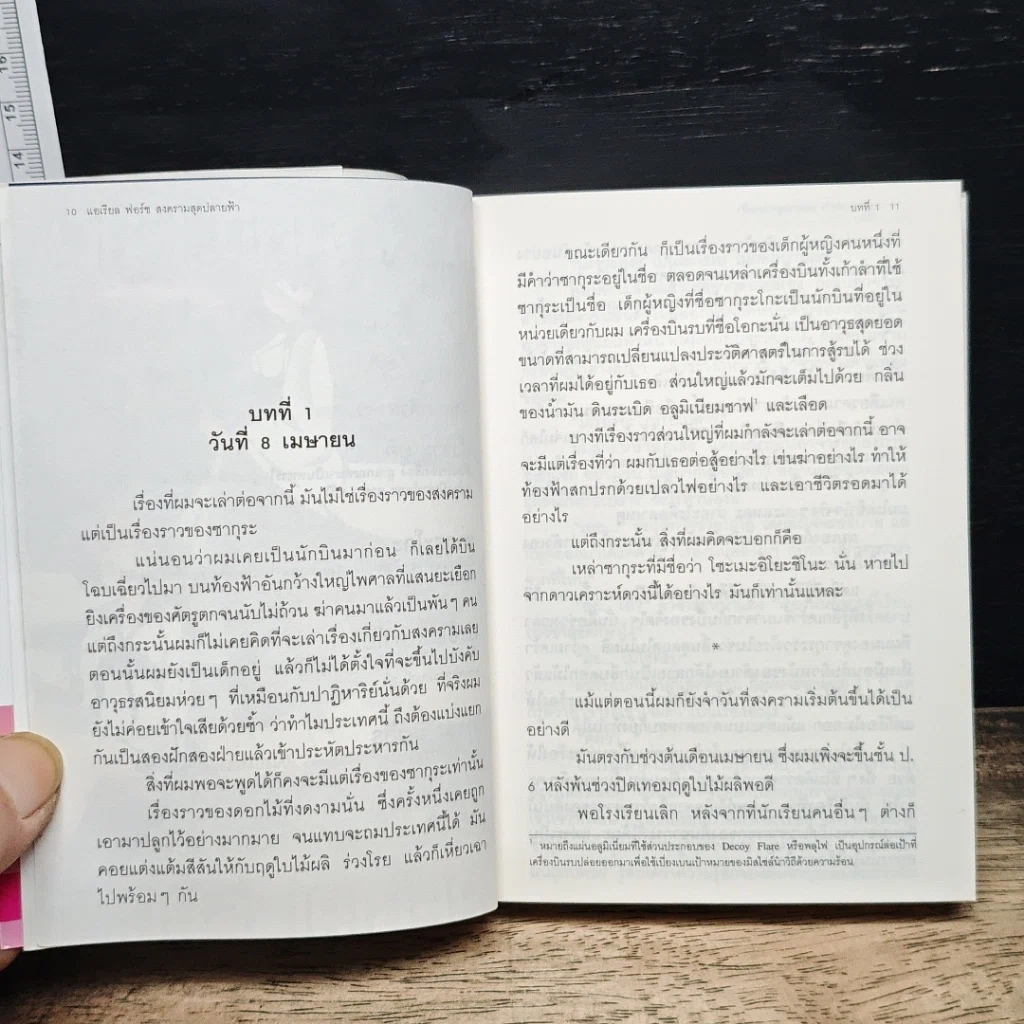 16
15
14
10 แอเรียล ฟอร์ซ สงครามสุดปลายฟ้า
บทที่ 1
วันที่ 8 เมษายน
เรื่องที่ผมจะเล่าต่อจากนี้ มันไม่ใช่เรื่องราวของสงคราม
แต่เป็นเรื่องราวของซากุระ
แน่นอนว่าผมเคยเป็นนักบินมาก่อน ก็เลยได้บิน
โฉบเฉี่ยวไปมา บนท้องฟ้าอันกว้างใหญ่ไพศาลที่แสนยะเยือก
ยิงเครื่องของศัตรูตกจนนับไม่ถ้วน ฆ่าคนมาแล้วเป็นพันๆ คน
แต่ถึงกระนั้นผมก็ไม่เคยคิดที่จะเล่าเรื่องเกี่ยวกับสงครามเลย
ตอนนั้นผมยังเป็นเด็กอยู่ แล้วก็ไม่ได้ตั้งใจที่จะขึ้นไปบังคับ
อาวุธรสนิยมห่วยๆ ที่เหมือนกับปาฏิหาริย์นั่นด้วย ที่จริงผม
ยังไม่ค่อยเข้าใจเสียด้วยซ้ำ ว่าทำไมประเทศนี้ ถึงต้องแบ่งแยก
กันเป็นสองฝักสองฝ่ายแล้วเข้าประหัตประหารกัน
สิ่งที่ผมพอจะพูดได้ก็คงจะมีแต่เรื่องของซากุระเท่านั้น
เรื่องราวของดอกไม้ที่งดงามนั่น ซึ่งครั้งหนึ่งเคยถูก
เอามาปลูกไว้อย่างมากมาย จนแทบจะถมประเทศนี้ได้ มัน
คอยแต่งแต้มสีสันให้กับฤดูใบไม้ผลิ ร่วงโรย แล้วก็เหี่ยวเฉา
ไปพร้อมๆ กัน
บทที่ 1 11
ขณะเดียวกัน ก็เป็นเรื่องราวของเด็กผู้หญิงคนหนึ่งที่
มีคำว่าซากุระอยู่ในชื่อ ตลอดจนเหล่าเครื่องบินทั้งเก้าลำที่ใช้
ซากุระเป็นชื่อ เด็กผู้หญิงที่ชื่อซากุระโกะเป็นนักบินที่อยู่ใน
หน่วยเดียวกับผม เครื่องบินรบที่ชื่อโอกะนั่น เป็นอาวุธสุดยอด
ขนาดที่สามารถเปลี่ยนแปลงประวัติศาสตร์ในการสู้รบได้ ช่วง
เวลาที่ผมได้อยู่กับเธอ ส่วนใหญ่แล้วมักจะเต็มไปด้วย กลิ่น
ของน้ำมัน ดินระเบิด อลูมิเนียมชาฟ¹ และเลือด
บางทีเรื่องราวส่วนใหญ่ที่ผมกำลังจะเล่าต่อจากนี้ อาจ
จะมีแต่เรื่องที่ว่า ผมกับเธอต่อสู้อย่างไร เข่นฆ่าอย่างไร ทำให้
ท้องฟ้าสกปรกด้วยเปลวไฟอย่างไร และเอาชีวิตรอดมาได้
อย่างไร
แต่ถึงกระนั้น สิ่งที่ผมคิดจะบอกก็คือ
เหล่าซากุระที่มีชื่อว่า โซะเมะอิโยะชิโนะ นั่น หายไป
จากดาวเคราะห์ดวงนี้ได้อย่างไร มันก็เท่านั้นแหละ
*
แม้แต่ตอนนี้ผมก็ยังจำวันที่สงครามเริ่มต้นขึ้นได้เป็น
อย่างดี
มันตรงกับช่วงต้นเดือนเมษายน ซึ่งผมเพิ่งจะขึ้นชั้น ป.
6 หลังพ้นช่วงปิดเทอมฤดูใบไม้ผลิพอดี
พอโรงเรียนเลิก หลังจากที่นักเรียนคนอื่นๆ ต่างก็
¹ หมายถึงแผ่นอลูมิเนียมที่ใช้ส่วนประกอบของ Decoy Flare หรือพลุไฟ เป็นอุปกรณ์ล่อเป้าที่
เครื่องบินรบปล่อยออกมาเพื่อใช้เบี่ยงเบนเป้าหมายของมิสไซล์นำวิถีด้วยความร้อน